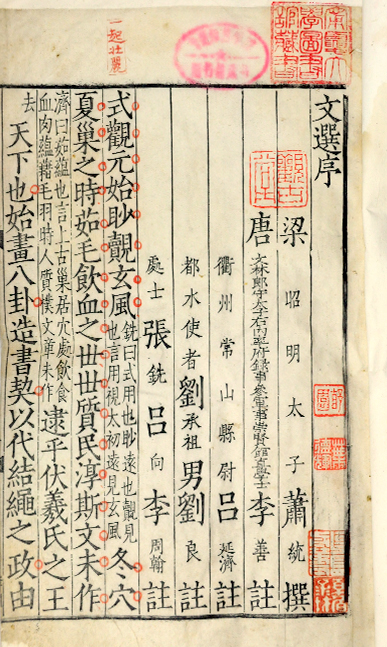 文選序
梁昭明太子蕭統撰
唐文林郎守太子右內率府錄事參軍事崇賢館直學士李善註
衢州常山縣尉呂延濟註
都水使者劉承祖男劉良註
處士張銑呂向李周翰註
一起壯麗
式觀元始眇覿玄風銑曰式用也眇遠也覿見也言用視太初遠見玄風冬穴
夏巢之時茹毛飲血之世世質民淳斯文未作
濟曰茹蘊也言上古巢居穴處飲食血肉蘊藉毛羽時人質樸文章未作逮乎伏羲氏之王
去
天下也始畫八卦造書契以代結繩之政由